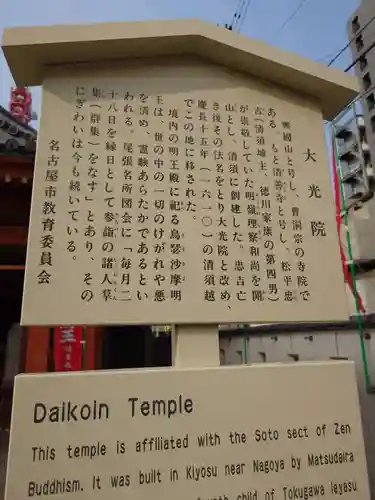 大光院
興國山と号し、曹洞宗の寺院で
ある。もと清善寺と号し、松平忠
吉(清須城主、徳川家康の第四男)
が崇敬していた明嶺理察和尚を開
山とし、清須に創建した。忠吉亡
き後その法名をとり大光院と改め、
慶長十五年(一六一〇)の清須越
でこの地に移された。
境内の明王殿に祀る烏瑟沙摩明
王は、世の中の一切のけがれや悪
を清め、霊験あらたかであるとい
われる。尾張名所図会に「毎月二
十八日を縁日として参詣の諸人羣
集(群集)をなす」とあり、その
にぎわいは今も続いている。
名古屋市教育委員会
Daikoin Temple
This temple is affiliated with the Soto sect of Zen
Buddhism. It was built in Kiyosu near Nagoya by Matsudaira
child of Tokugawa Ieyasu